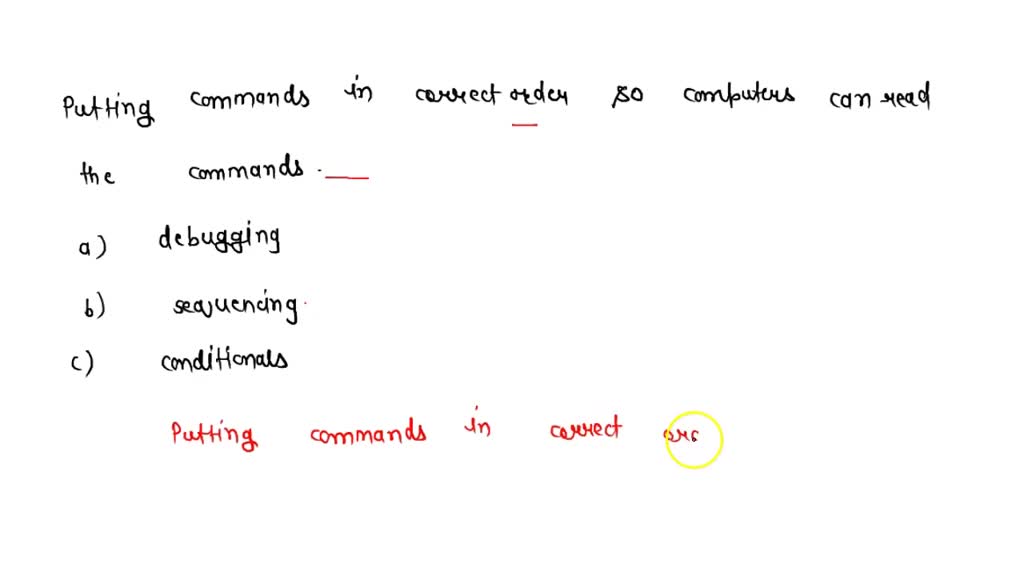 Putting commands in correct order so computers can read
the commands. __
a) debugging
b) sequencing
c) conditionals
Putting commands in correct ord